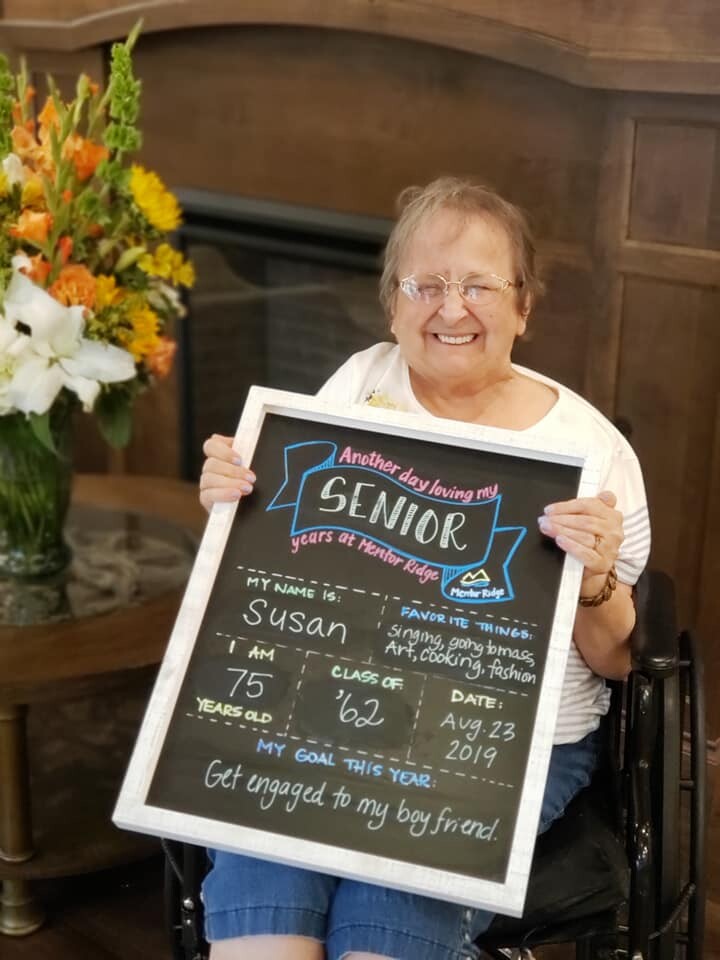 Another day loving my
SENIOR
years at Mentor Ridge
Mentor Ridge
MY NAME IS:
Susan
FAVORITE THINGS:
singing, going to mass,
Art, cooking, fashion
I AM
75
YEARS OLD
CLASS OF:
'62
DATE:
Aug. 23
2019
MY GOAL THIS YEAR:
Get engaged to my boy friend.